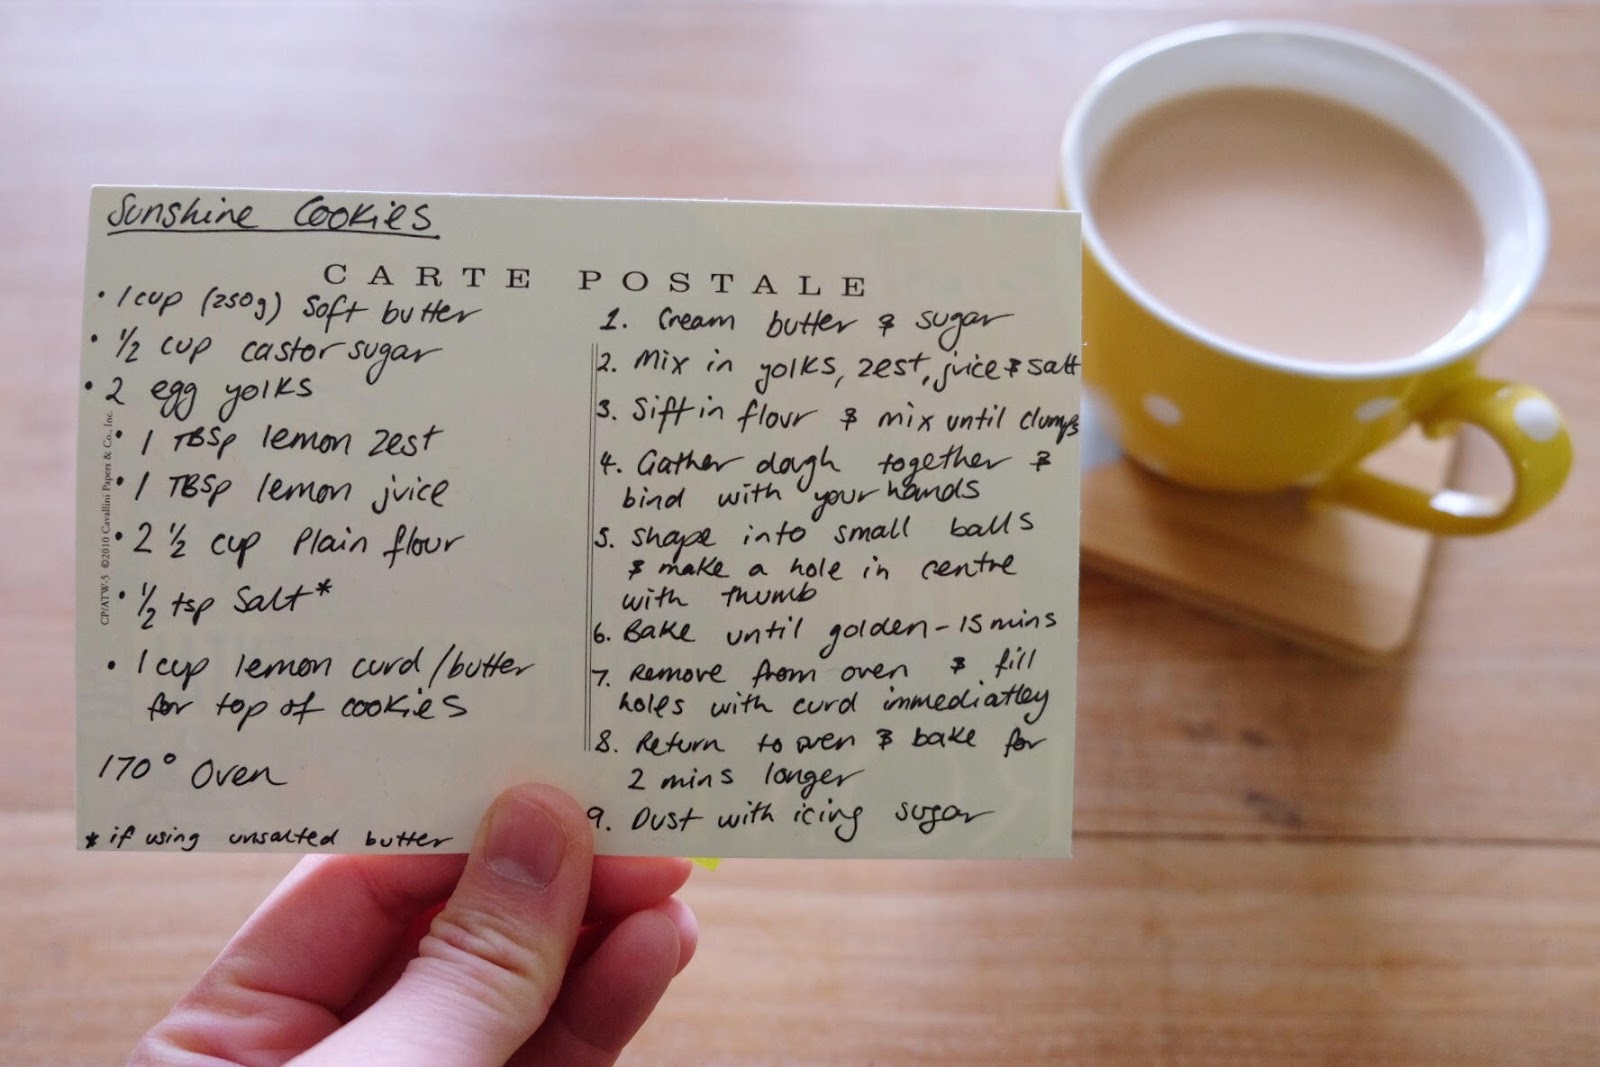 Sunshine Cookies
CARTE POSTALE
• 1 cup (250g) soft butter
• 1/2 cup castor sugar
• 2 egg yolks
• 1 TBSp lemon zest
• 1 TBSp lemon juice
• 2 1/2 cup plain flour
• 1/2 tsp salt*
• 1 cup lemon curd/butter
for top of cookies
170° oven
* if using unsalted butter
CP/ATW-5 ©2010 Cavallini Papers & Co., Inc.
1. Cream butter & sugar
2. Mix in yolks, zest, juice & salt
3. Sift in flour & mix until clumps
4. Gather dough together &
bind with your hands
5. Shape into small balls
& make a hole in centre
with thumb
6. Bake until golden - 15 mins
7. Remove from oven & fill
holes with curd immediatley
8. Return to oven & bake for
2 mins longer
9. Dust with icing sugar